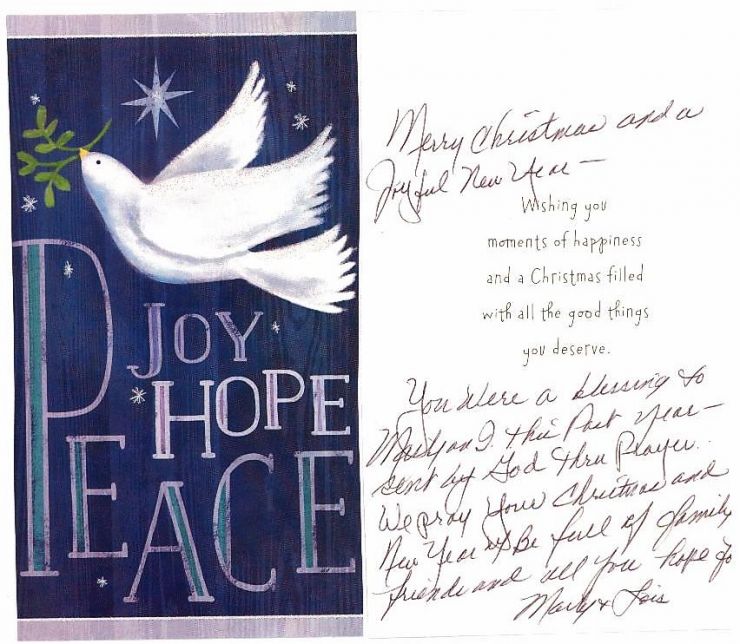 JOY
HOPE
PEACE
Merry Christmas and a
Joyful New Year —
Wishing you
moments of happiness
and a Christmas filled
with all the good things
you deserve.
You were a blessing to
and I this Past year —
sent by God thru Prayer.
We pray your Christmas and
New Year Be full of family
friends and all you hope for
& Lois